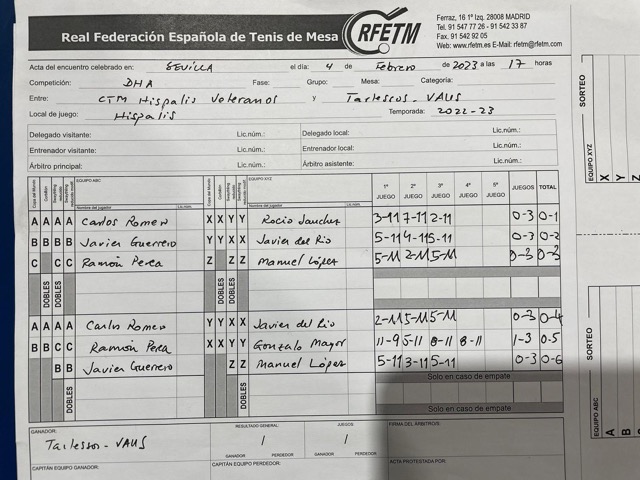 Real Federación Española de Tenis de Mesa
RFETM
Ferraz, 16 1º Izq. 28008 MADRID
Tel. 91 547 77 26 - 91 542 33 87
Fax. 91 542 92 05
Web: www.rfetm.es E-Mail: rfetm@rfetm.com
Acta del encuentro celebrado en: SEVILLA el día: 4 de Febrero de 2023 a las 17 horas
Competición: DHA Fase: Grupo: Mesa: Categoría:
Entre: CTM Hispalis Veteranos y Tartessos - VAUS
Local de juego: Hispalis Temporada: 2022-23
Delegado visitante: Lic.núm.: Delegado local: Lic.núm.:
Entrenador visitante: Lic.núm.: Entrenador local: Lic.núm.:
Árbitro principal: Lic.núm.: Árbitro asistente: Lic.núm.:
EQUIPO ABC EQUIPO XYZ 1º JUEGO 2º JUEGO 3º JUEGO 4º JUEGO 5º JUEGO JUEGOS TOTAL
Nombre del jugador Lic.núm. Nombre del jugador Lic.núm.
A A A A Carlos Romero X X Y Y Rocio Sanchez 3-11 7-11 2-11 0-3 0-1
B B B B Javier Guerrero Y Y X X Javier del Rio 5-11 4-11 5-11 0-3 0-2
C C C Ramón Perea Z Z Z Manuel López 5-11 2-11 5-11 0-3 0-3
DOBLES DOBLES DOBLES DOBLES
A A A A Carlos Romero Y Y X X Javier del Rio 2-11 5-11 5-11 0-3 0-4
B B C C Ramón Perea X X Y Y Gonzalo Mayor 11-9 5-11 8-11 8-11 1-3 0-5
B B Javier Guerrero Z Z Manuel López 5-11 3-11 5-11 0-3 0-6
Solo en caso de empate
DOBLES DOBLES
Solo en caso de empate
GANADOR: Tartessos - VAUS
RESULTADO GENERAL: / GANADOR PERDEDOR
JUEGOS: / GANADOR PERDEDOR
FIRMA DEL ÁRBITROS:
CAPITÁN EQUIPO GANADOR: CAPITÁN EQUIPO PERDEDOR: ACTA PROTESTADA POR:
SORTEO
EQUIPO XYZ
X
Y
Z
SORTEO
EQUIPO ABC
A
B